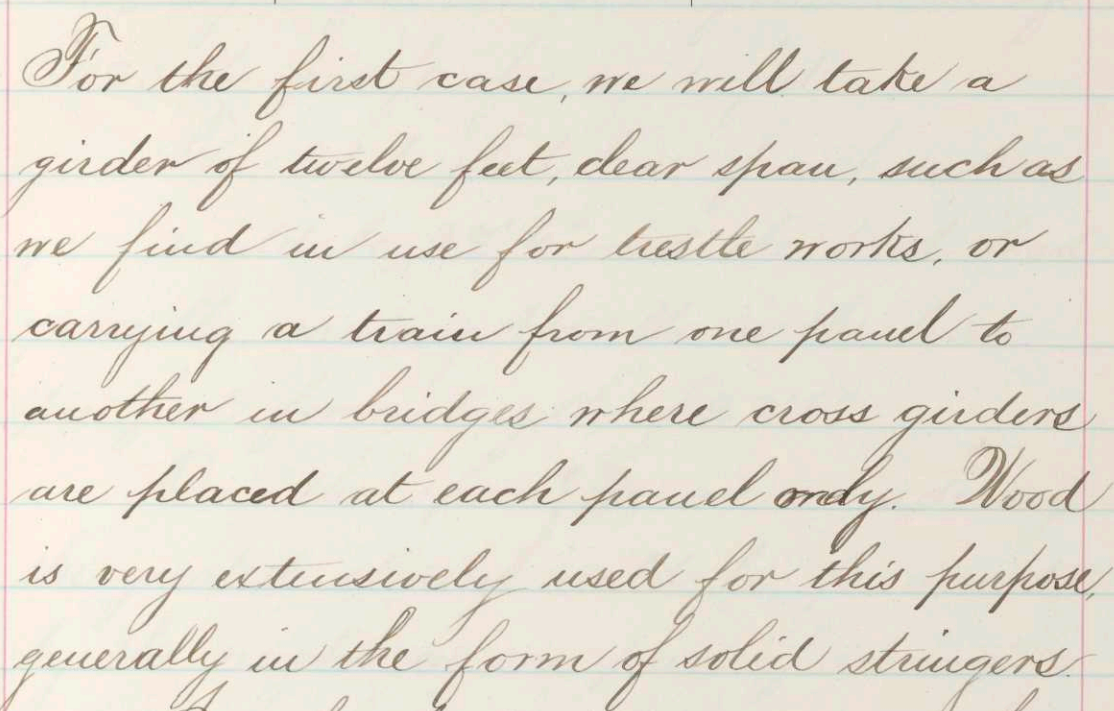 For the first case, we will take a
girder of twelve feet, clear span, such as
we find in use for trestle works, or
carrying a train from one panel to
another in bridges where cross girders
are placed at each panel only. Wood
is very extensively used for this purpose,
generally in the form of solid stringers.